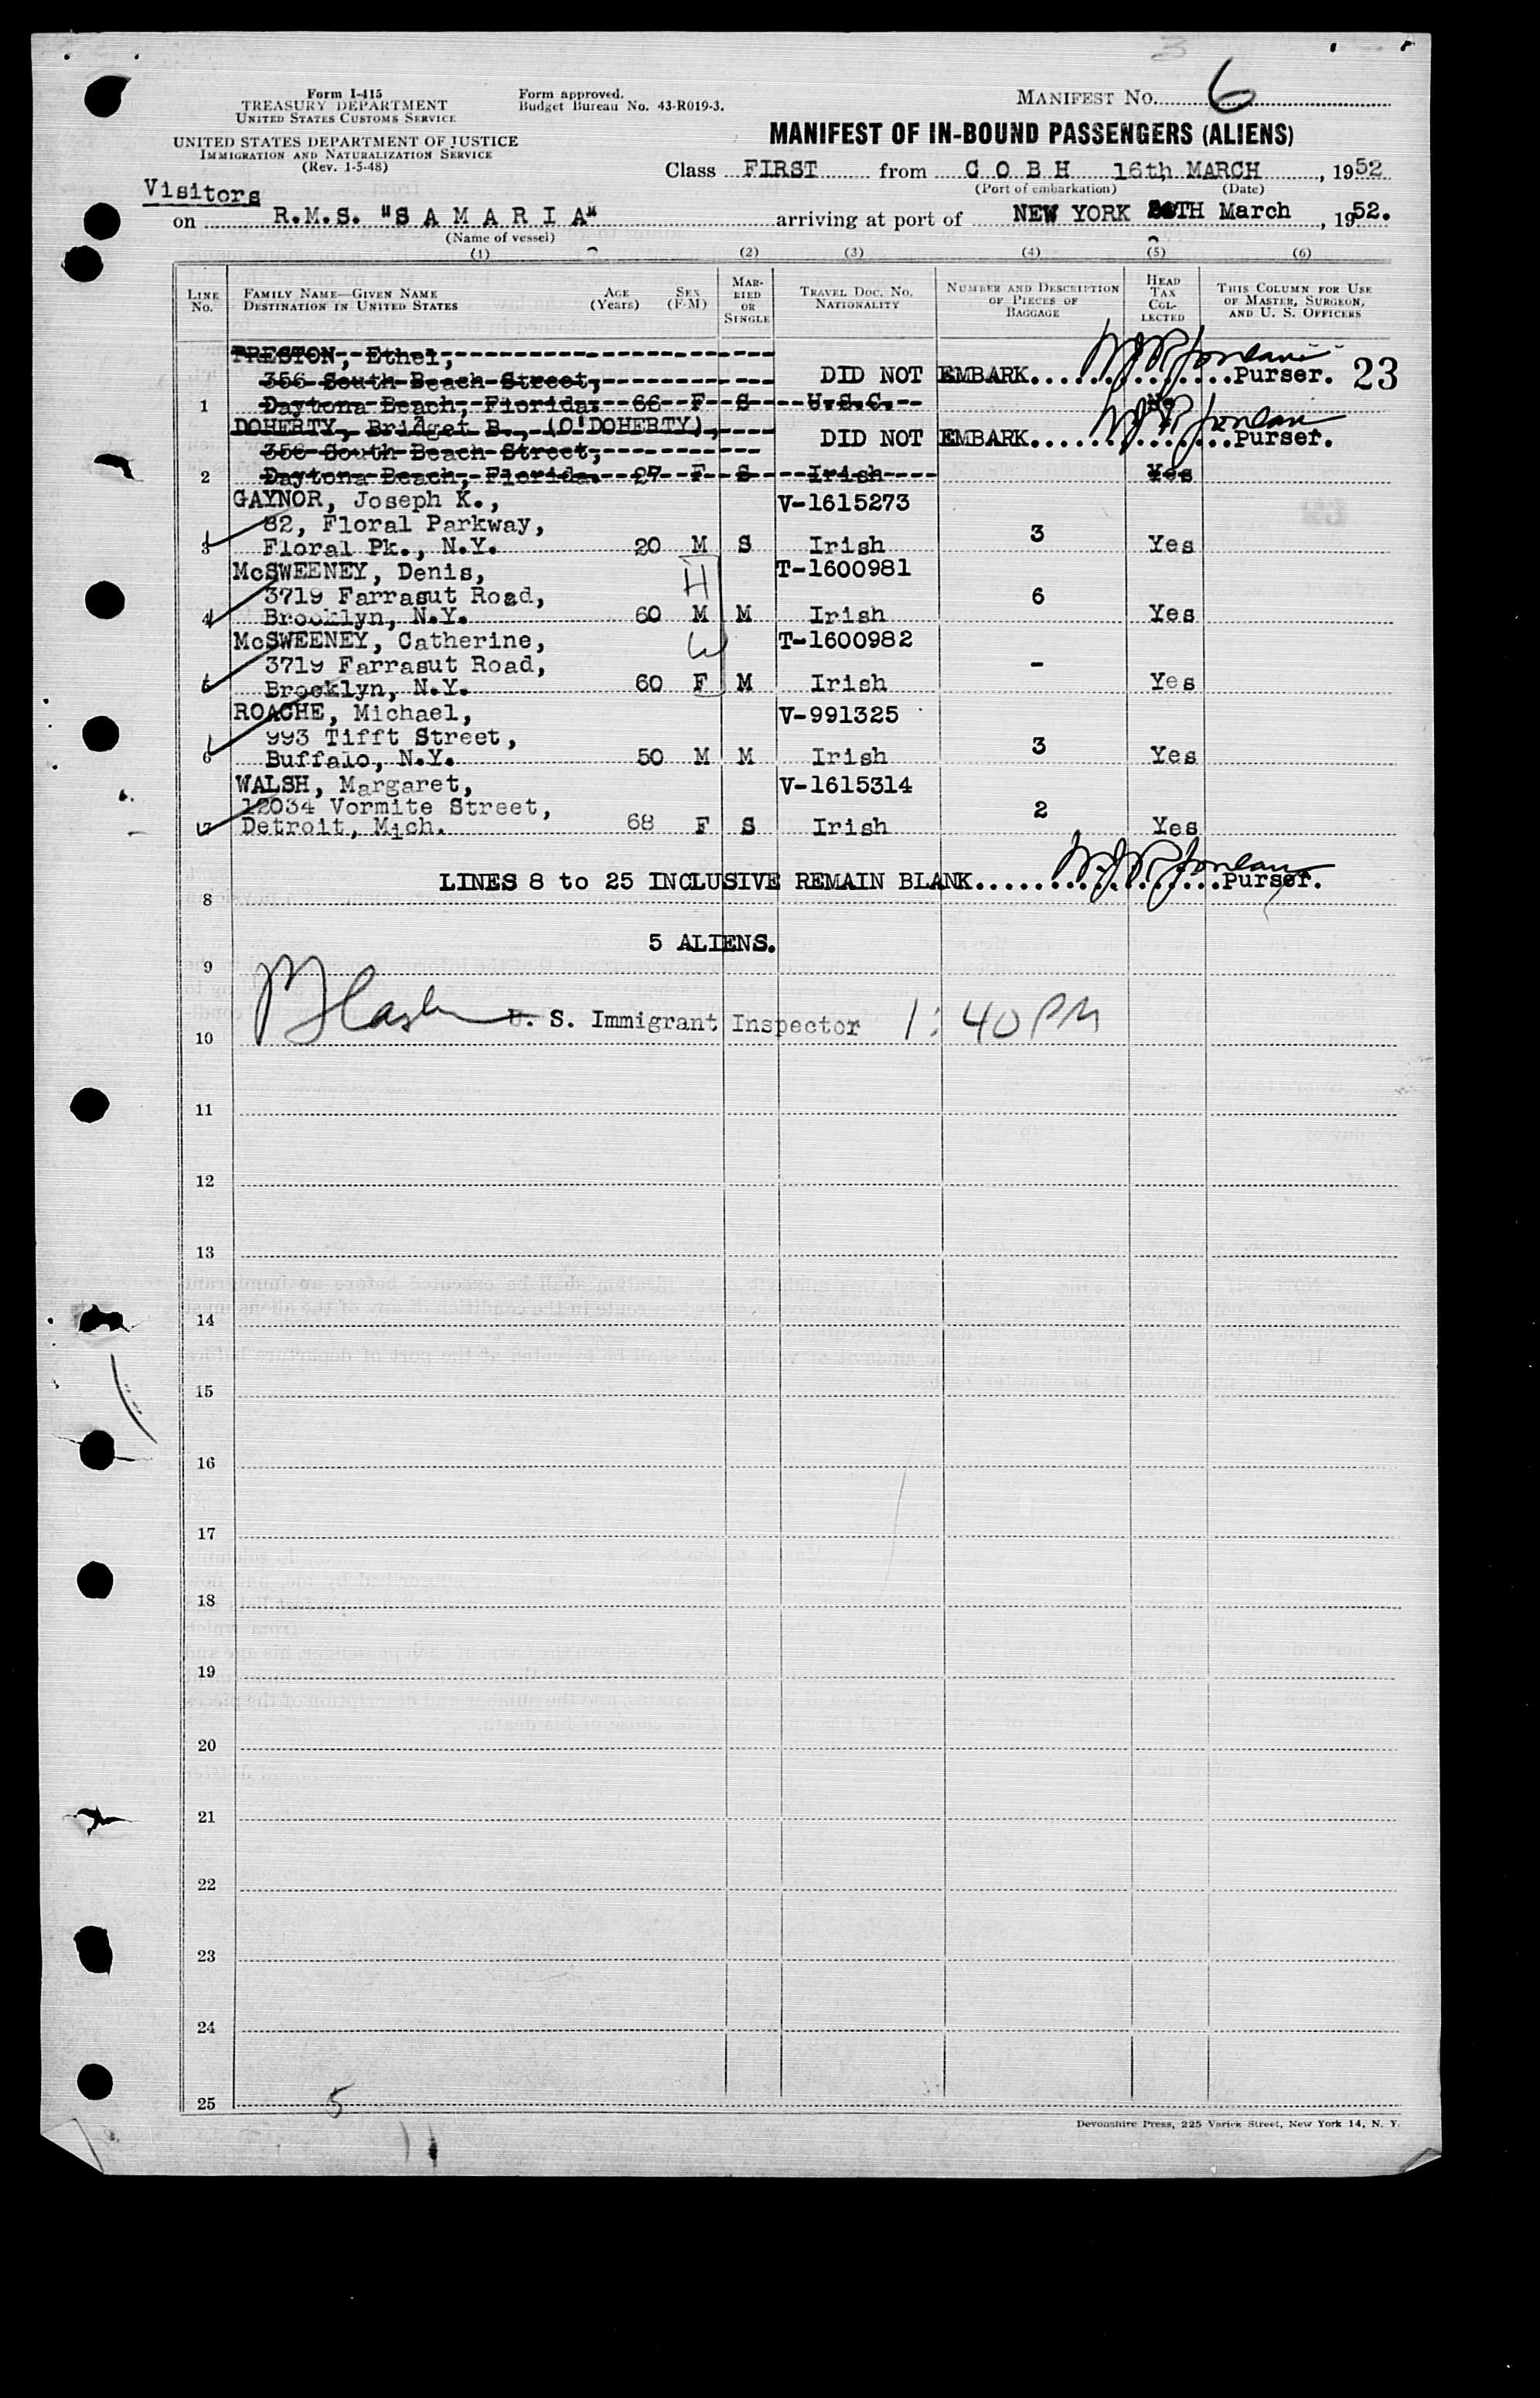 3
Form I-415
TREASURY DEPARTMENT
UNITED STATES CUSTOMS SERVICE
Form approved.
Budget Bureau No. 43-R019-3.
MANIFEST No. 6
UNITED STATES DEPARTMENT OF JUSTICE
IMMIGRATION AND NATURALIZATION SERVICE
(Rev. 1-5-48)
MANIFEST OF IN-BOUND PASSENGERS (ALIENS)
Class FIRST from C O B H 16th MARCH, 1952
(Port of embarkation) (Date)
Visitors
on R.M.S. "S A M A R I A" arriving at port of NEW YORK TH March, 1952.
(Name of vessel)
(1) (2) (3) (4) (5) (6)
LINE No.
FAMILY NAME—GIVEN NAME
DESTINATION IN UNITED STATES
AGE (Years)
SEX (F-M)
MARRIED OR SINGLE
TRAVEL DOC. NO.
NATIONALITY
NUMBER AND DESCRIPTION OF PIECES OF BAGGAGE
HEAD TAX COLLECTED
THIS COLUMN FOR USE OF MASTER, SURGEON, AND U. S. OFFICERS
PRESTON, Ethel,
356 South Beach Street, DID NOT EMBARK Purser. 23
1 Daytona Beach, Florida. 66 F S U.S.C. No
DOHERTY, Bridget B., (O'DOHERTY), DID NOT EMBARK Purser.
356 South Beach Street,
2 Daytona Beach, Florida. 27 F S Irish Yes
GAYNOR, Joseph K., V-1615273
82, Floral Parkway,
3 Floral Pk., N.Y. 20 M S Irish 3 Yes
McSWEENEY, Denis, H T-1600981
3719 Farrasut Road,
4 Brooklyn, N.Y. 60 M M Irish 6 Yes
McSWEENEY, Catherine, W T-1600982
3719 Farrasut Road,
5 Brooklyn, N.Y. 60 F M Irish - Yes
ROACHE, Michael, V-991325
993 Tifft Street,
6 Buffalo, N.Y. 50 M M Irish 3 Yes
WALSH, Margaret, V-1615314
12034 Vormite Street,
7 Detroit, Mich. 68 F S Irish 2 Yes
LINES 8 to 25 INCLUSIVE REMAIN BLANK Purser.
8
5 ALIENS.
9
U. S. Immigrant Inspector 1:40 PM
10
11
12
13
14
15
16
17
18
19
20
21
22
23
24
25
5
Devonshire Press, 225 Varick Street, New York 14, N. Y.